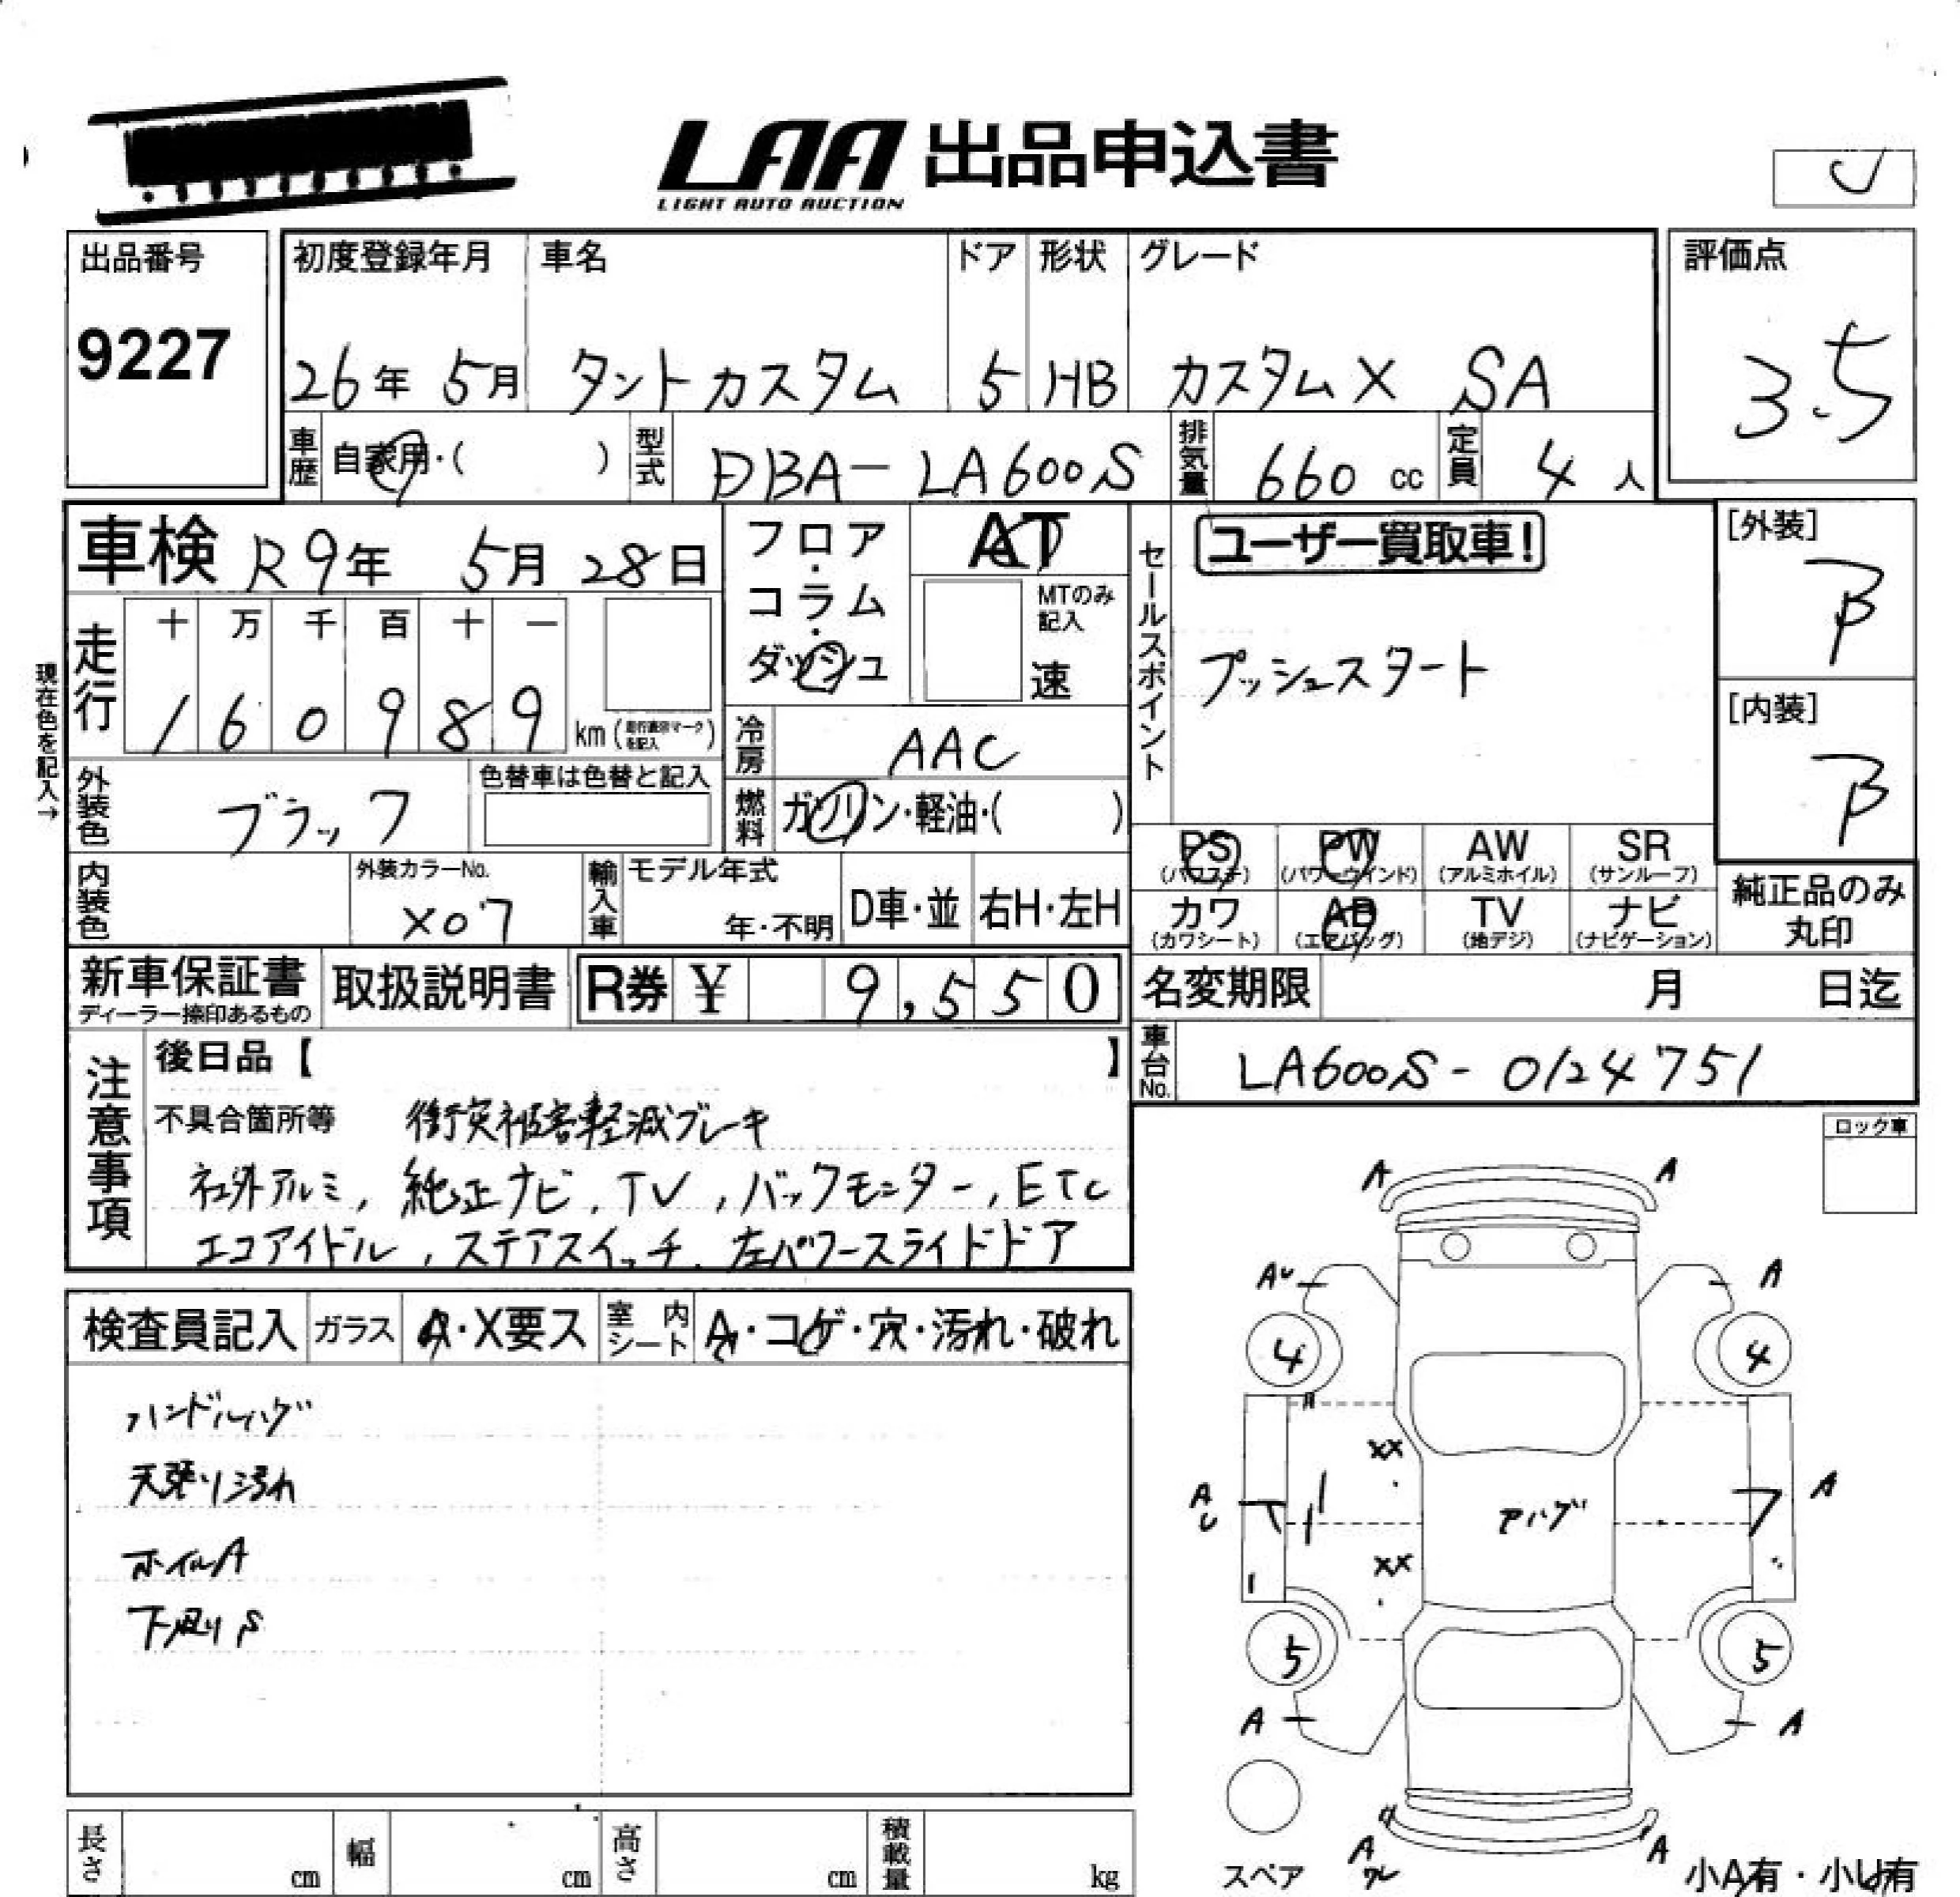 LAA 出品申込書
LIGHT AUTO AUCTION
出品番号
9227
初度登録年月
26年 5月
車名
タントカスタム
ドア
5
形状
HB
グレード
カスタムX SA
評価点
3.5
車歴
自家用・( )
型式
DBA-LA600S
排気量
660 cc
定員
4 人
車検 R9年 5月 28日
フロア・コラム・ダッシュ
AT
MTのみ記入
速
セールスポイント
ユーザー買取車!
プッシュスタート
[外装]
B
[内装]
B
現在色を記入→
走行
十 万 千 百 十 一
1 6 0 9 8 9 km
冷房
AAC
外装色
ブラック
色替車は色替と記入
燃料
ガソリン・軽油・( )
内装色
外装カラーNo.
X07
輸入車
モデル年式
年・不明
D車・並
右H・左H
PS (パワステ)
PW (パワーウインド)
AW (アルミホイル)
SR (サンルーフ)
カワ (カワシート)
AB (エアバッグ)
TV (地デジ)
ナビ (ナビゲーション)
純正品のみ丸印
新車保証書
ディーラー捺印あるもの
取扱説明書
R券 ¥ 9,550
名変期限 月 日迄
車台No.
LA600S-0124751
注意事項
後日品【 】
不具合箇所等 衝突被害軽減ブレーキ
社外アルミ, 純正ナビ, TV, バックモニター, ETC
エコアイドル, ステアスイッチ, 左パワースライドドア
ロック車
検査員記入
ガラス
A・X要ス
室内シート
A・コゲ・穴・汚れ・破れ
ハンドルハゲ
天張り汚れ
ホイルA
下廻りS
A A
AU A
4 4
A
XX
AU A
XX
5 5
A A
A A
スペア
小A有・小U有
長さ cm
幅 cm
高さ cm
積載量 kg